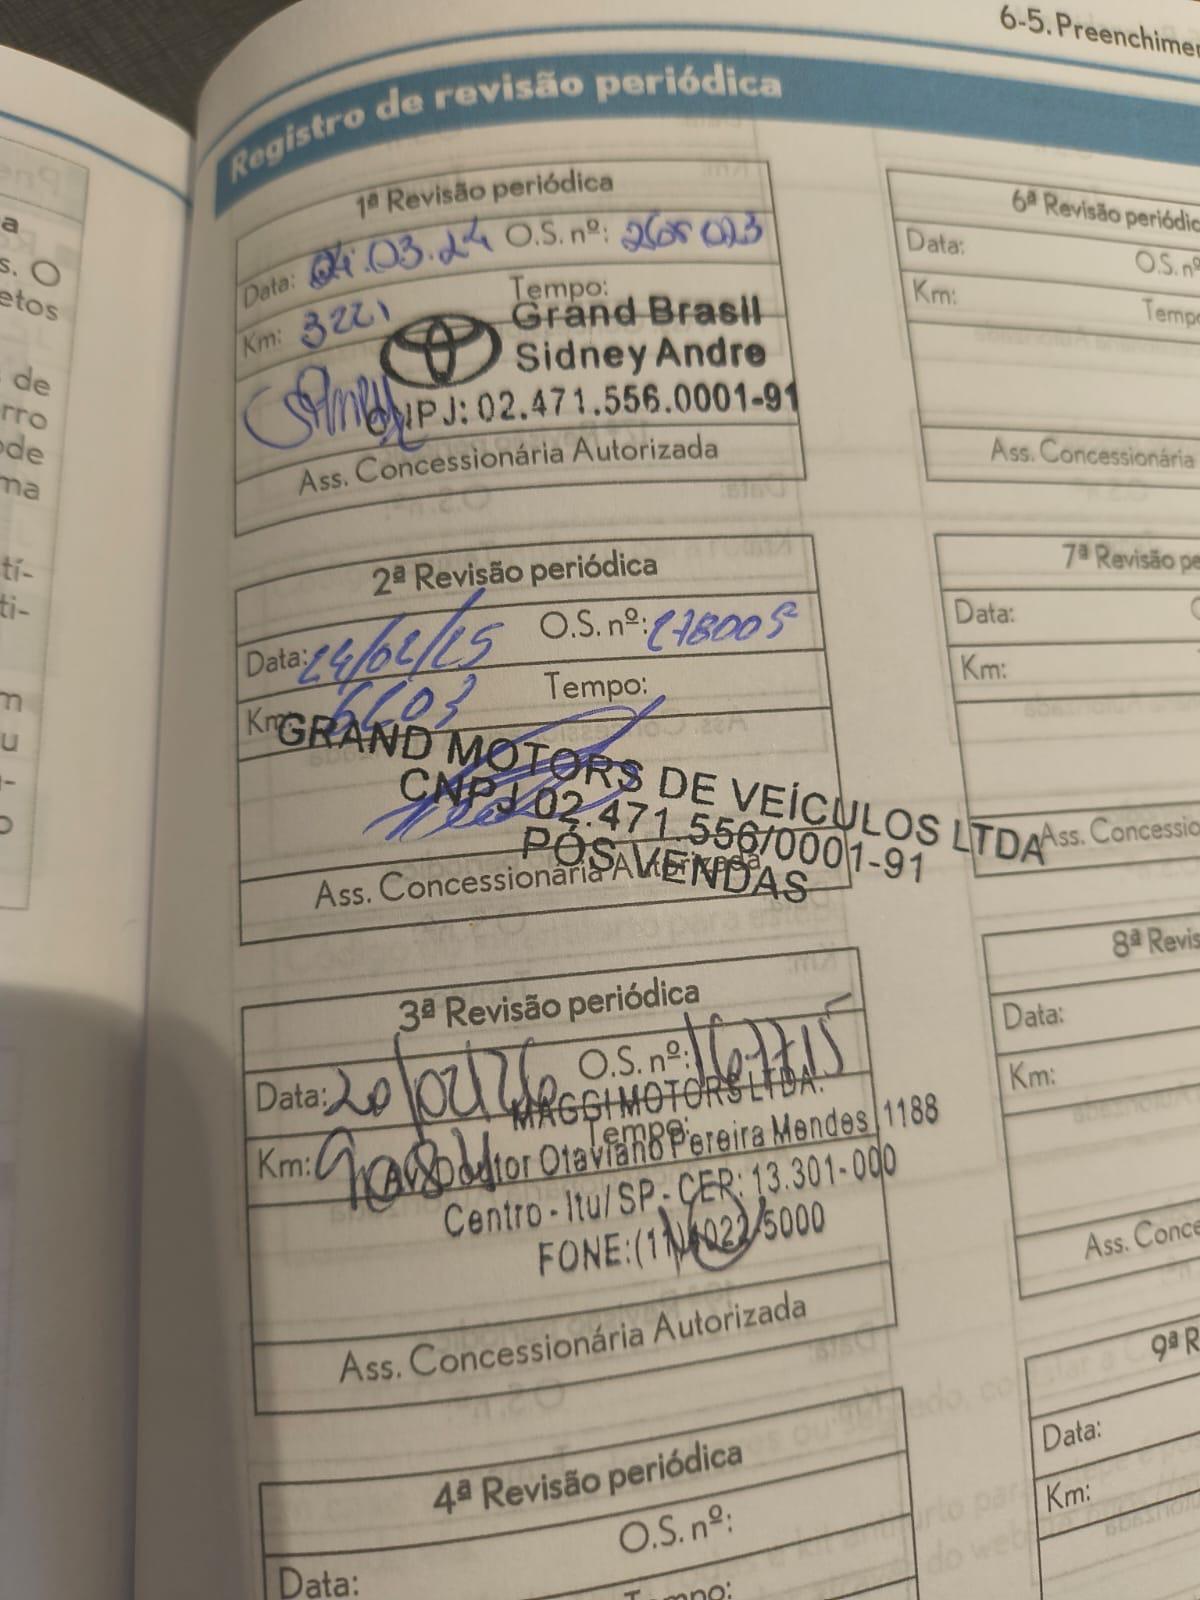 6-5. Preenchimen
Registro de revisão periódica
1ª Revisão periódica
Data: 04.03.24 O.S. nº: 268023
Km: 3221 Tempo:
Grand Brasil
Sidney Andre
CNPJ: 02.471.556.0001-91
Ass. Concessionária Autorizada
2ª Revisão periódica
Data: 24/02/25 O.S. nº: 278005
Km: Tempo:
GRAND MOTORS DE VEÍCULOS LTDA
CNPJ 02.471.556/0001-91
PÓS VENDAS
Ass. Concessionária Autorizada
3ª Revisão periódica
Data: O.S. nº: 167715
MAGGI MOTORS LTDA.
Km: Tempo:
Doutor Otaviano Pereira Mendes, 1188
Centro - Itu/SP - CEP: 13.301-000
FONE: (11) 4022-5000
Ass. Concessionária Autorizada
4ª Revisão periódica
O.S. nº:
Data:
Tempo:
6ª Revisão periódic
Data: O.S. nº
Km: Tempo
Ass. Concessionária
7ª Revisão pe
Data:
Km:
Ass. Concessio
8ª Revis
Data:
Km:
Ass. Conce
9ª R
Data:
Km:
a
s. O
etos
de
rro
ode
ma
tí-
ti-
m
u
o